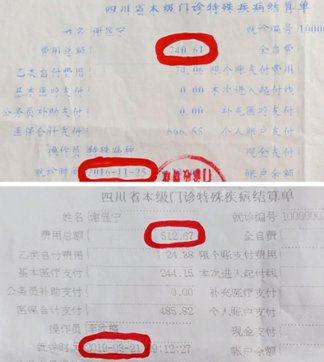 四川省本级门诊特殊疾病结算单
姓名 就诊编号 10000
费用总额 740.61 全自费
乙类自付费用 74.06 限个账支付费用
基本医疗支付 本次进个起付线
公务员补助支付 0.00 补充医疗支付
医保合计支付 666.55 个人账户支付
操作员 现金支付
就诊时间 2016-11-25 账户余额
四川省本级门诊特殊疾病结算单
姓名 就诊编号 1000000
费用总额 512.67 全自费
乙类自付费用 24.88 限个账支付费用
基本医疗支付 244.15 本次进个起付线
公务员补助支付 0.00 补充医疗支付
医保合计支付 485.82 个人账户支付
操作员 现金支付
就诊时间 2019-03-21 09:12:27 账户余额